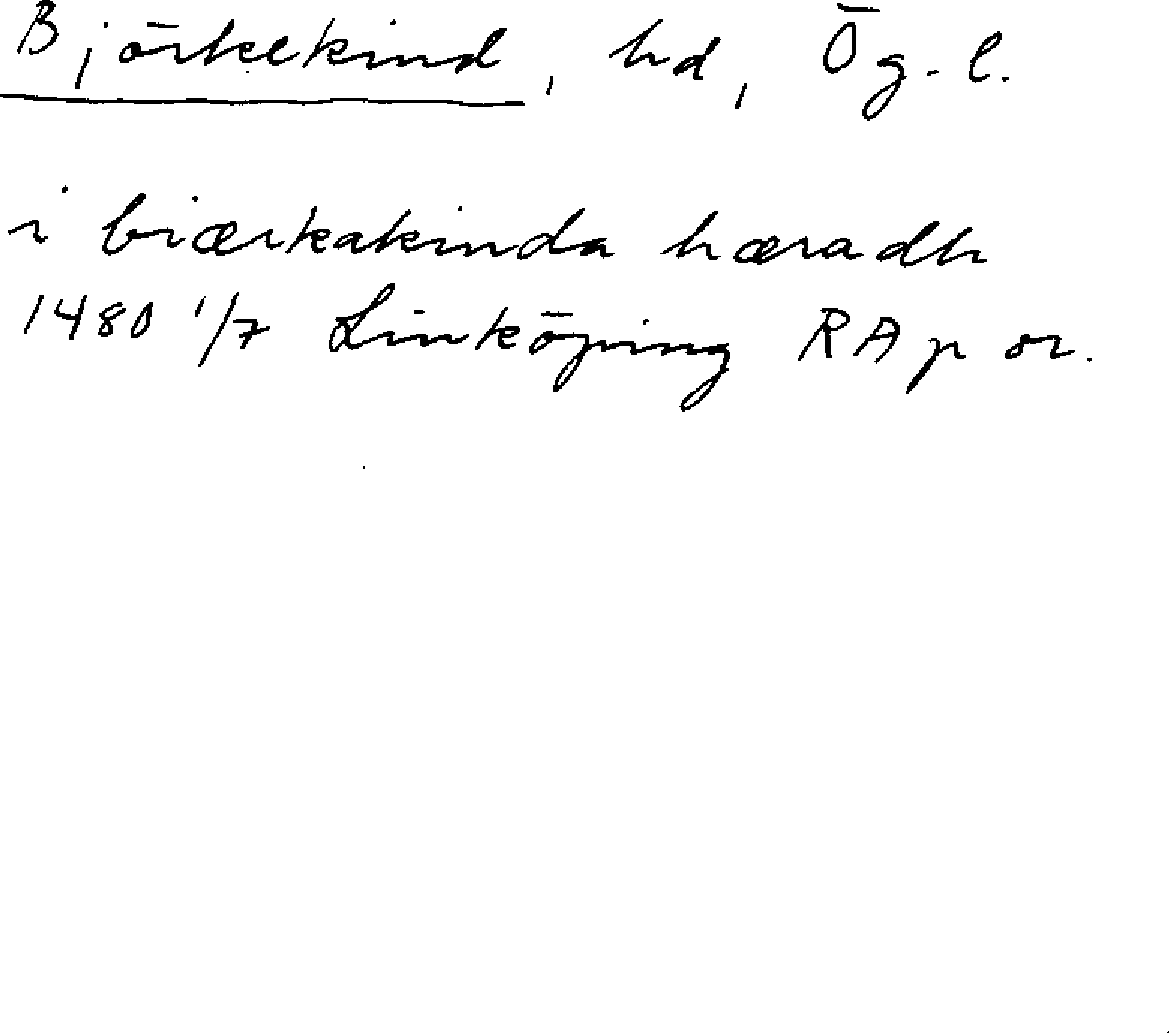 Björkekind, hd, Ög. l.
i biærkakinda hæradh
1480 1/7 Linköping RA p or.